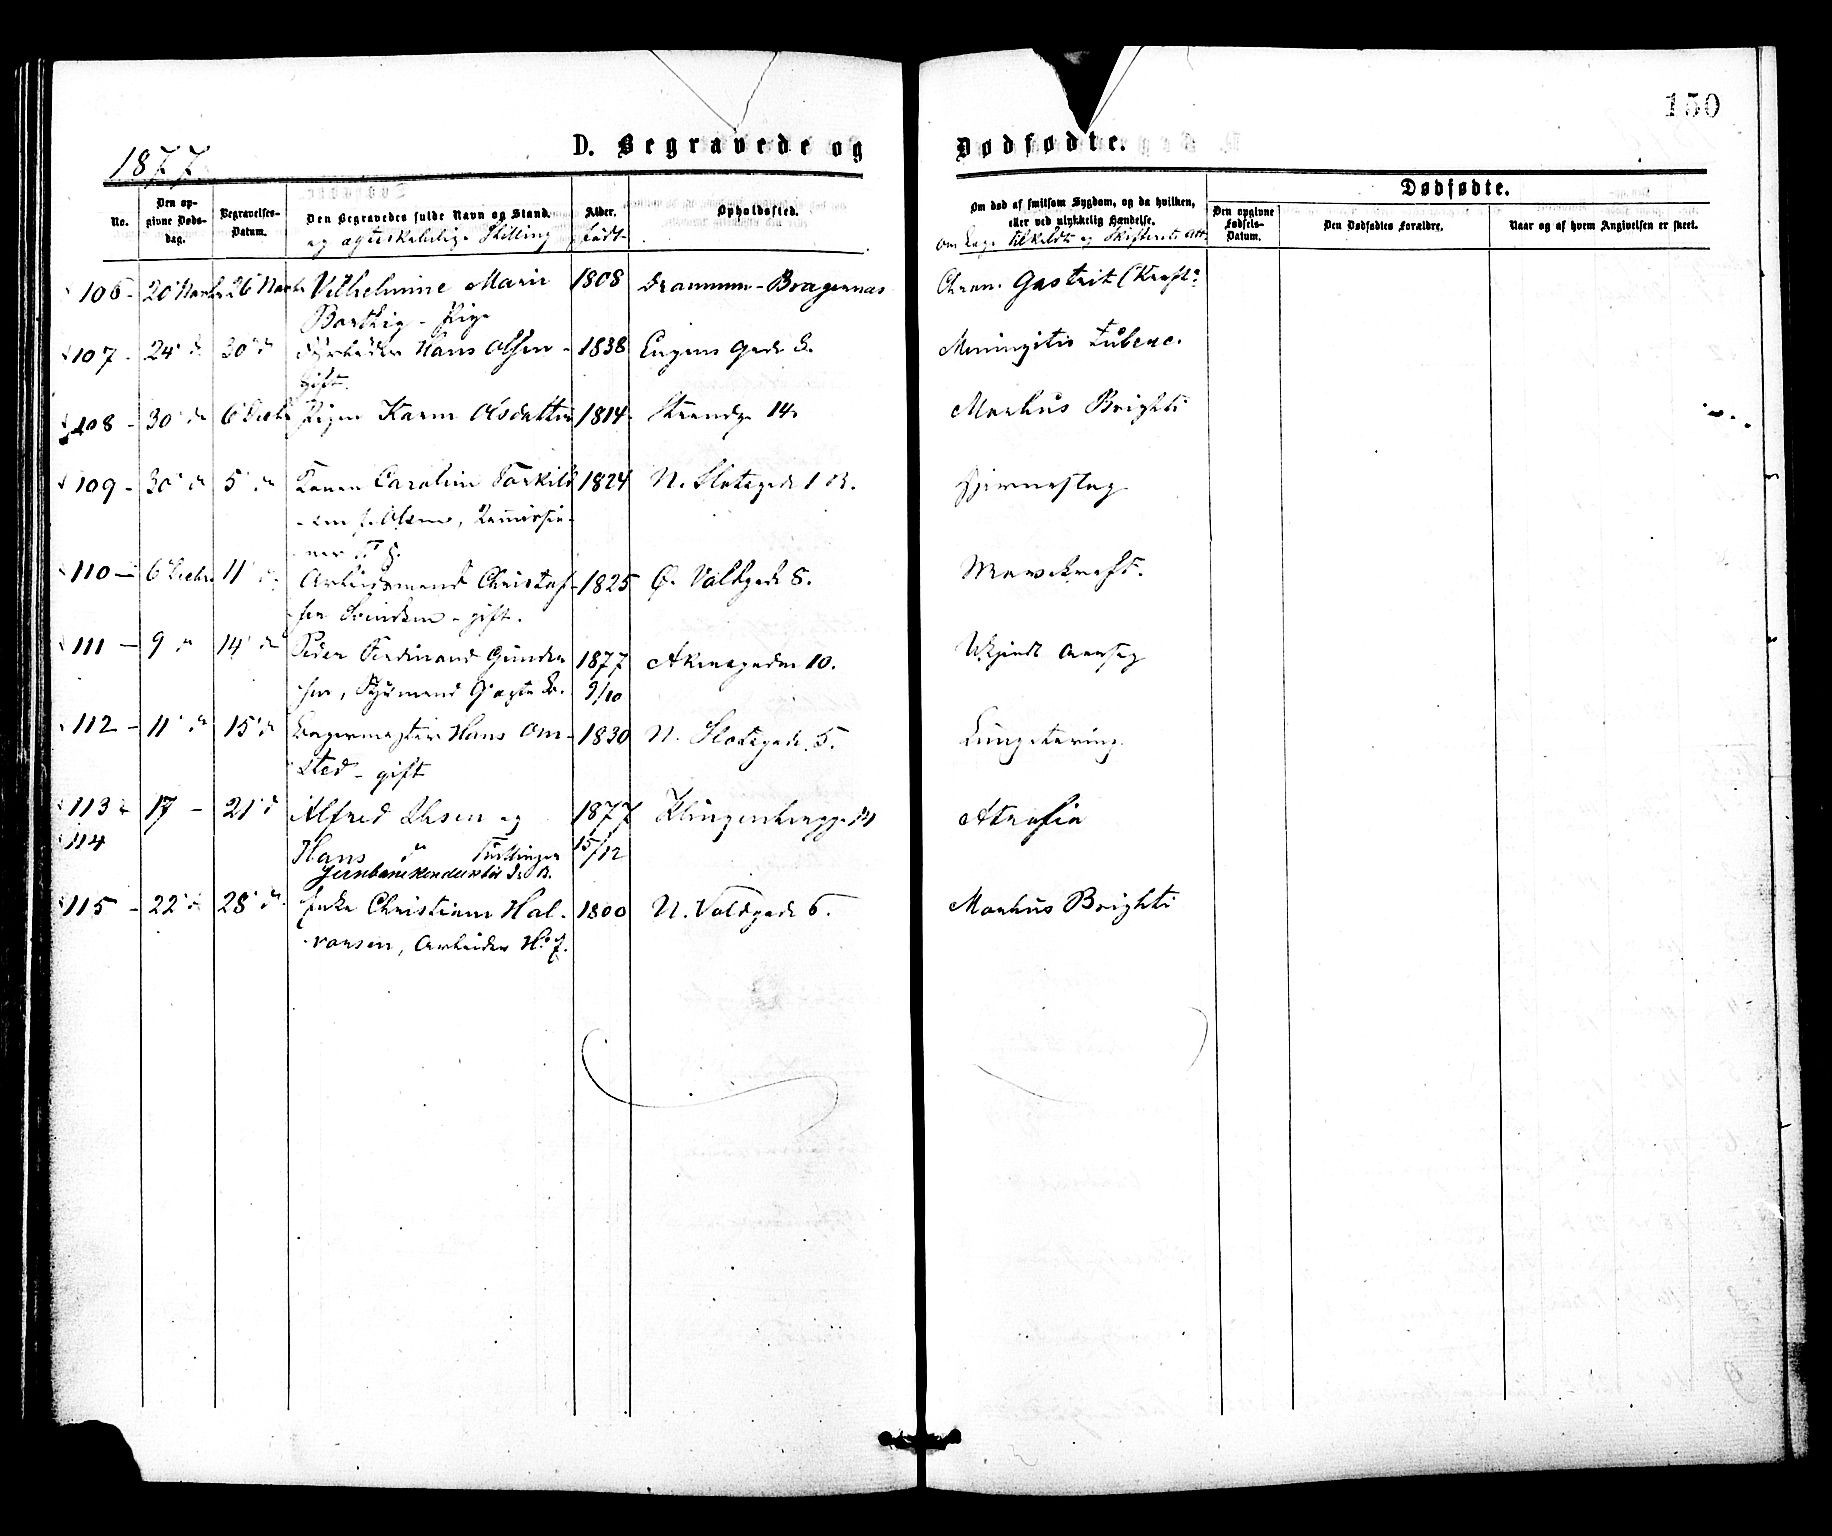 150
1877
D. Begravede og Dødfødte.
No.
Den op-
givne Døds-
dag.
Begravelses-
Datum.
Den Begravedes fulde Navn og Stand.
og ægteskabelige Stilling
Alder.
født
Opholdssted.
Om død af smitsom Sygdom, og da hvilken,
eller ved ulykkelig Hændelse.
om Læge tilkaldt og Skifterets Att.
Dødfødte.
Den opgivne
Fødsels-
Datum.
Den Dødfødtes Forældre.
Naar og af hvem Angivelsen er skeet.
106 - 20 Novbr 26 Novbr Vilhelmine Marie 1808 Drammen - Bragernæs Chron. Gastrit (Kræft?
- Pige
107 - 24' d 30' d Hans Olsen - 1838 Gade 8. Meningitis Tuberc.
Gift.
108 - 30' d 6' Decbr Pigen Karen Olsdatter 1814 Strandg. 14. Morbus Brighti
109 - 30' d 5' d Konen Caroline Torkild 1824 N. Slotsgade 1 B. Hjerneslag
- sen f. Olsen,
110 - 6' Decbr 11' d Arbeidsmand Christof- 1825 Ø. Voldgade 8. Mavekræft.
fer Svendsen - gift.
111 - 9 d 14' d Peder Ferdinand Gunder 1877 Akersgaden 10. Ukjendt Aarsag
sen, Styrmand 9/10
112 - 11' d 15' d Bagermester Hans Om- 1830 N. Slotsgade 5. Lungetæring
sted - gift
113 - 17 - 21' d Alfred Ihsen og 1877 Klingenbergg. Atrofia
114 Hans d Tvillinger 15/12
115 - 22' d 28' d Enke Christiane Hal- 1800 N. Voldgade 6. Morbus Brighti
vorsen, Arbeider